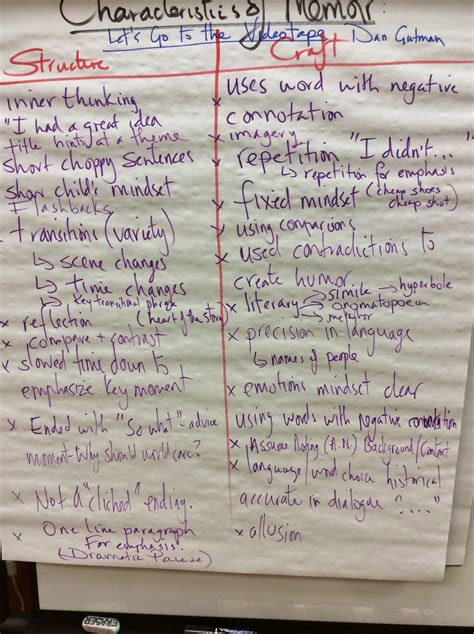 Characteristics of Memoir:
Let's Go to the Videotape Dan Gutman
Structure
inner thinking
"I had a great idea
title hints at a theme
short choppy sentences
show child's mindset
Flashbacks
transitions (variety)
↳ scene changes
↳ time changes
↳ key transitional phrase
x reflection (heart of the story)
x compare + contrast
x slowed time down to
emphasize key moment
x Ended with "So what"-advice
moment-Why should world care?
x Not a "cliched" ending.
x One line paragraph
for emphasis.
(Dramatic Pause)
Craft
uses word with negative
x connotation
x imagery
x repetition "I didn't..."
↳ repetition for emphasis
x fixed mindset (cheap shoes
cheap shot)
x using comparisons
x used contradictions to
create humor.
x literary simile hyperbole
onomatopoeia
metaphor
x precision in language
↳ names of people
x emotions mindset clear
using words with negative connotation
x Assumes Background/Context
x language/word choice historical
accurate in dialogue "...."
x allusion
ERASER